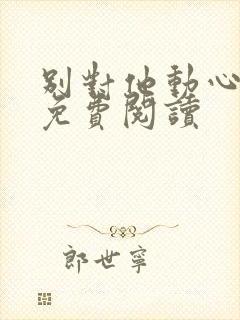 別對他動心
免費閱讀
郎世寧